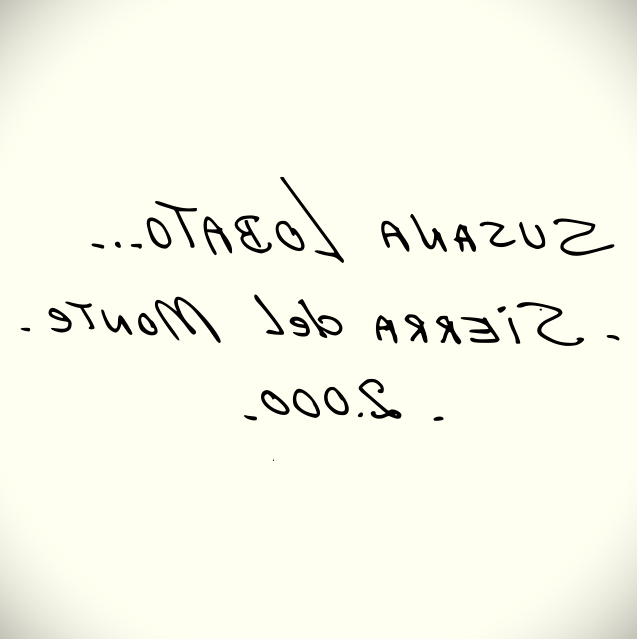 SUSANA LOBATO...
- SiERRA del MONTe.
- 2.000.